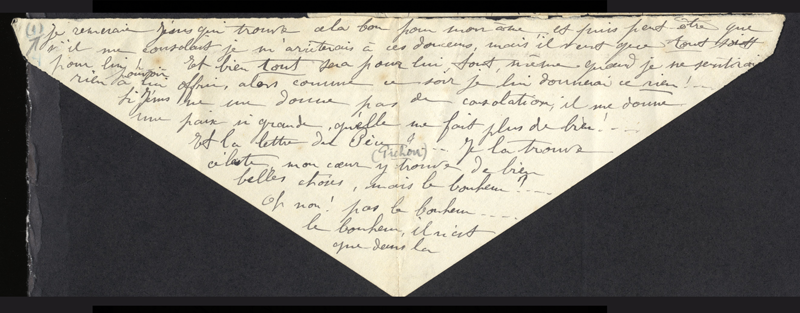 Je remercie Jésus qui trouve cela bon pour mon âme, et puis peut être que
s'il me consolait je m'arrêterais à ces douceurs, mais il veut que tout soit
pour lui! Et bien tout sera pour lui, tout, même quand je ne sentirai
rien à pouvoir lui offrir, alors comme ce soir je lui donnerai ce rien! ...
Si Jésus ne me donne pas de consolation, il me donne
une paix si grande, qu'elle me fait plus de bien! ...
Et la lettre du Père? ... Je la trouve
(Pichon)
céleste, mon cœur y trouve de bien
belles choses, mais le bonheur? ...
Oh non! pas le bonheur ...
le bonheur, il n'est
que dans la